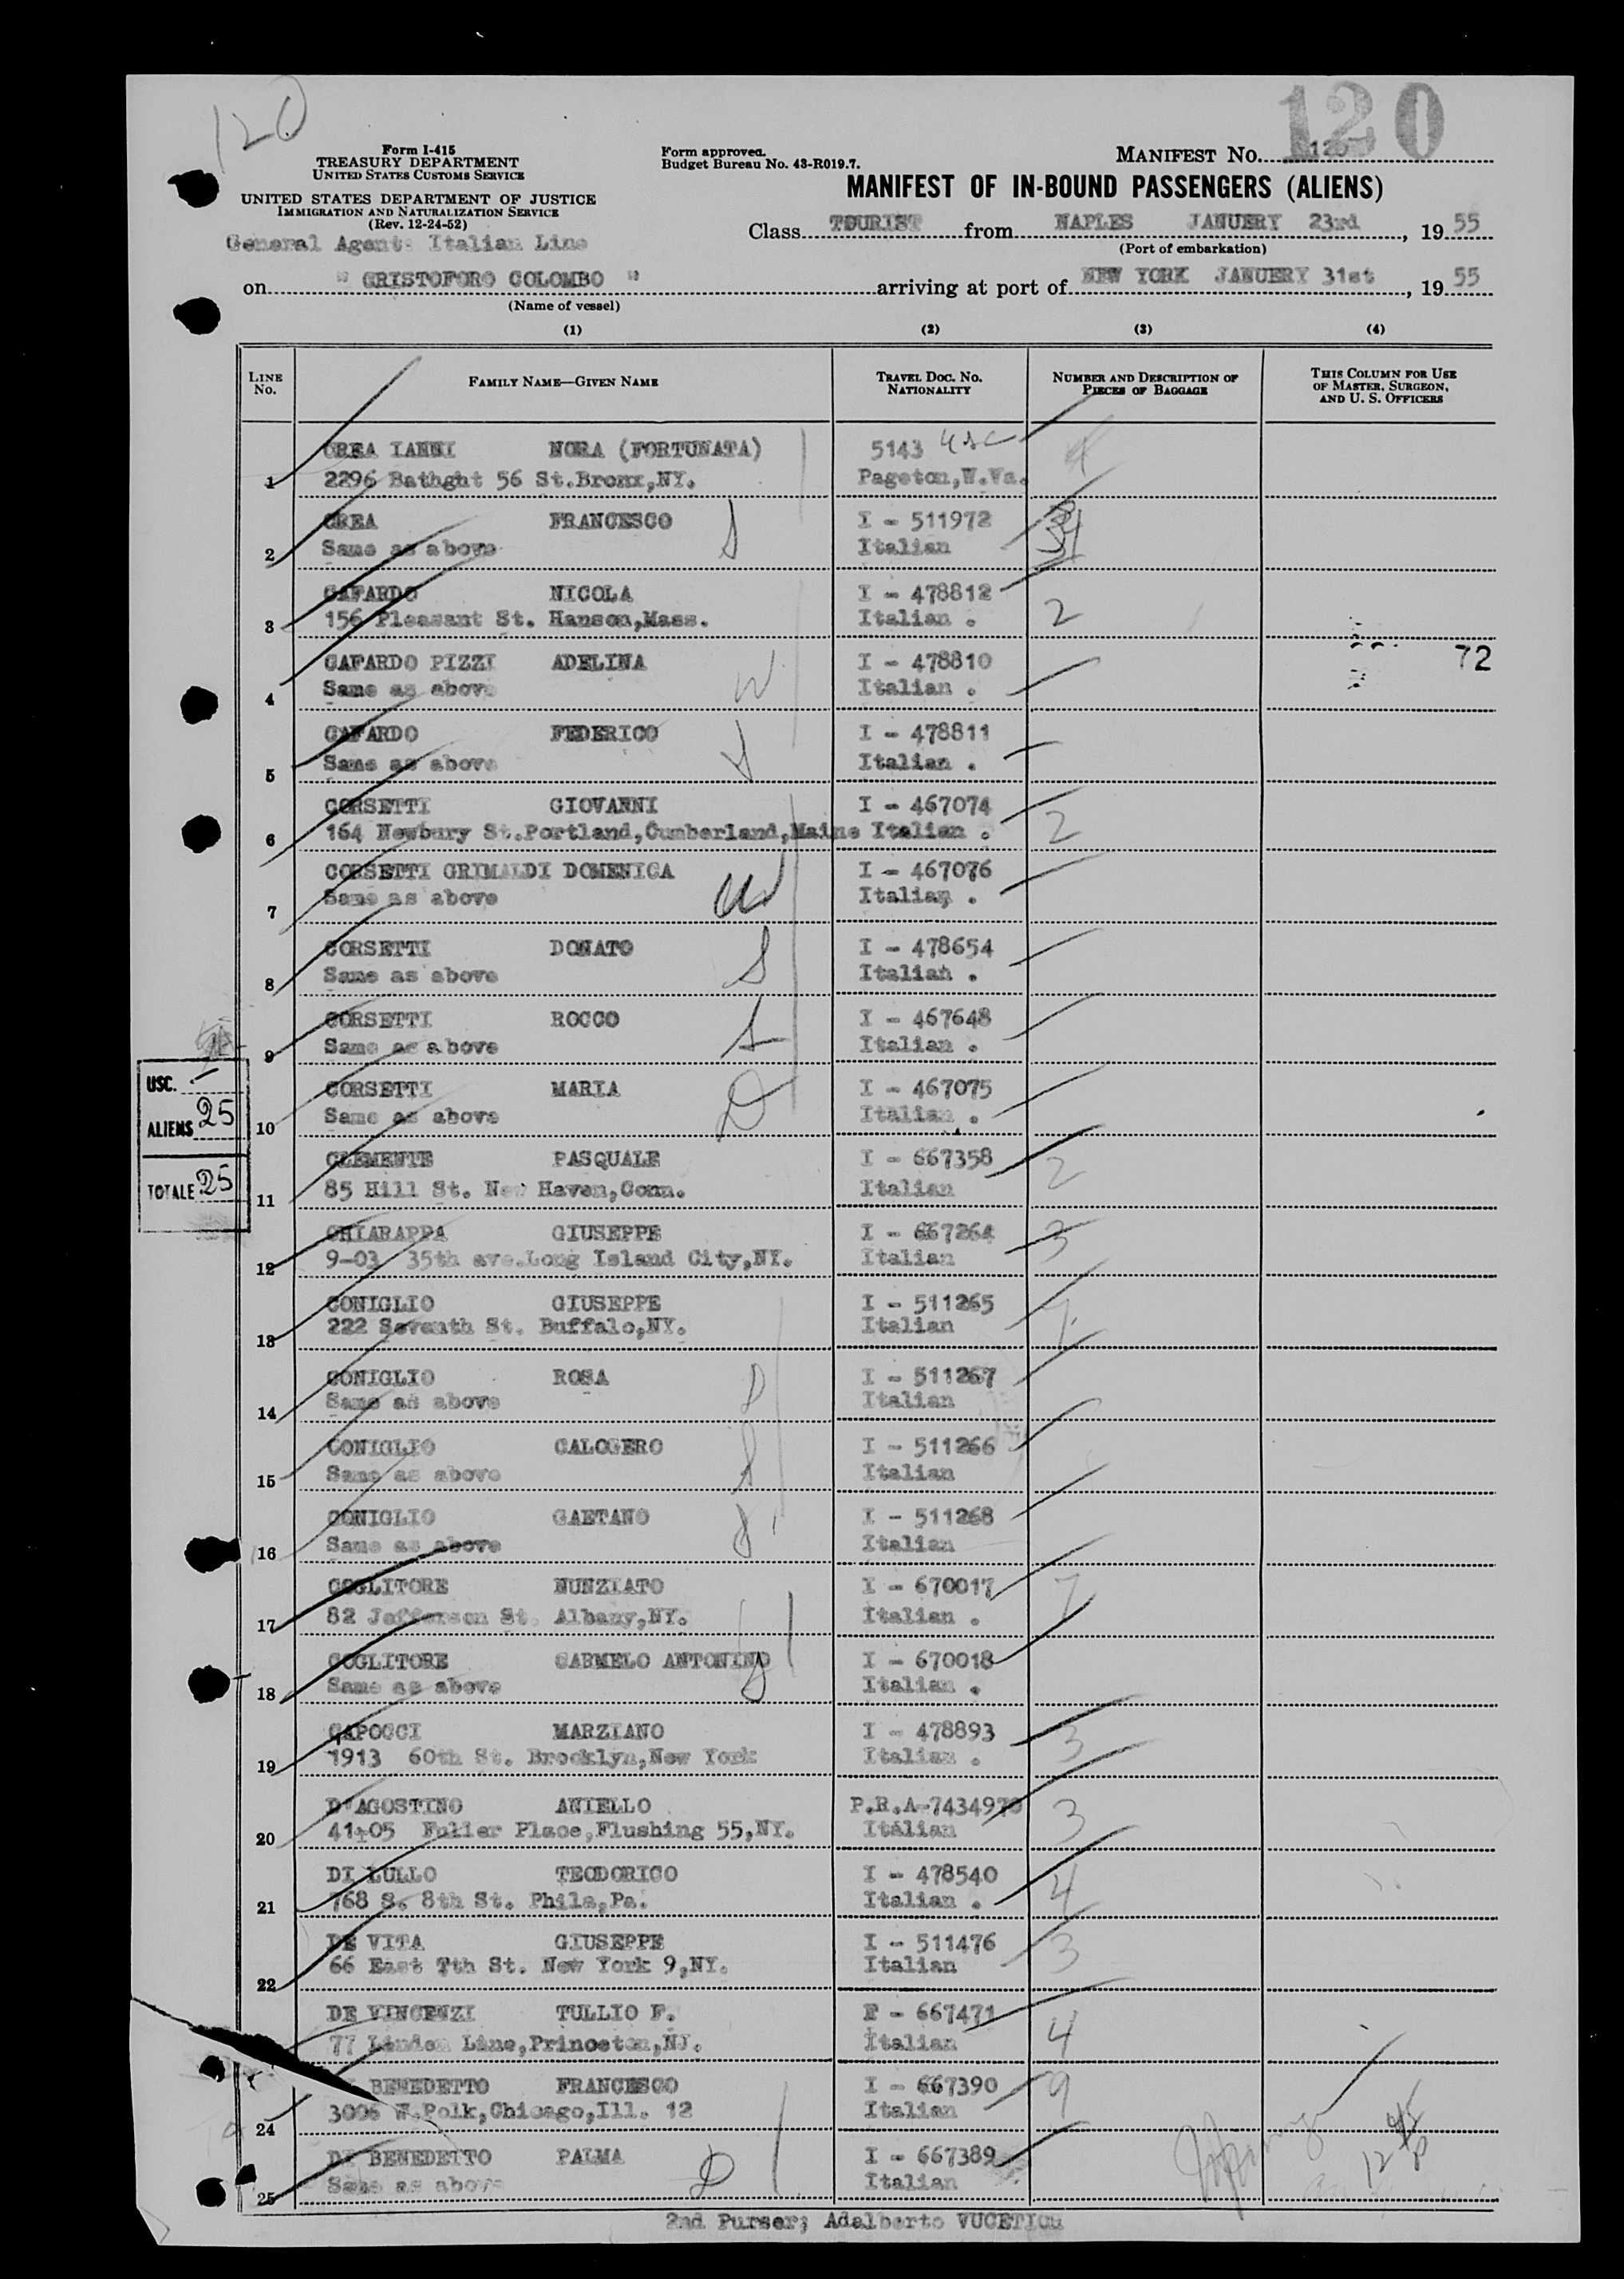 120
120
Form I-415
TREASURY DEPARTMENT
UNITED STATES CUSTOMS SERVICE
UNITED STATES DEPARTMENT OF JUSTICE
IMMIGRATION AND NATURALIZATION SERVICE
(Rev. 12-24-52)
General Agent: Italian Line
Form approved.
Budget Bureau No. 43-R019.7.
MANIFEST No. 120
MANIFEST OF IN-BOUND PASSENGERS (ALIENS)
Class TOURIST from NAPLES JANUERY 23rd, 1955
(Port of embarkation)
on " CRISTOFORO COLOMBO " arriving at port of NEW YORK JANUERY 31st, 1955
(Name of vessel)
(1) (2) (3) (4)
LINE No. FAMILY NAME—GIVEN NAME TRAVEL DOC. NO. NATIONALITY NUMBER AND DESCRIPTION OF PIECES OF BAGGAGE THIS COLUMN FOR USE OF MASTER, SURGEON, AND U. S. OFFICERS
CREA IANNI NORA (FORTUNATA) 5143 usc 4
1 2296 Bathght 56 St.Bronx,NY. Pageton,W.Va.
CREA FRANCESCO S I - 511972
2 Same as above Italian
CAFARDO NICOLA I - 478812 2
3 156 Pleasant St. Hanson,Mass. Italian .
CAFARDO PIZZI ADELINA W I - 478810 72
4 Same as above Italian .
CAFARDO FEDERICO S I - 478811
5 Same as above Italian .
CORSETTI GIOVANNI I - 467074 2
6 164 Newbury St.Portland,Cumberland,Maine Italian .
CORSETTI GRIMALDI DOMENICA W I - 467076
7 Same as above Italian .
CORSETTI DONATO S I - 478654
8 Same as above Italian .
CORSETTI ROCCO S I - 467648
9 Same as above Italian .
CORSETTI MARIA D I - 467075
10 Same as above Italian .
USC. —
ALIENS 25
TOTALE 25
CLEMENTE PASQUALE I - 667358 2
11 85 Hill St. New Haven,Conn. Italian
CHIARAPPA GIUSEPPE I - 667264 3
12 9-03 35th ave.Long Island City,NY. Italian
CONIGLIO GIUSEPPE I - 511265
13 222 Seventh St. Buffalo,NY. Italian
CONIGLIO ROSA D I - 511267
14 Same as above Italian
CONIGLIO CALOGERO S I - 511266
15 Same as above Italian
CONIGLIO GAETANO S I - 511268
16 Same as above Italian
COGLITORE NUNZIATO I - 670017 7
17 82 Jefferson St. Albany,NY. Italian .
COGLITORE CARMELO ANTONINO S I - 670018
18 Same as above Italian .
CAPOCCI MARZIANO I - 478893 3
19 1913 60th St. Brooklyn,New York Italian .
D'AGOSTINO ANIELLO P.R.A-7434970 3
20 41-05 Fuller Place,Flushing 55,NY. Italian
DI LULLO TEODORICO I - 478540 4
21 768 S. 8th St. Phila,Pa. Italian .
DE VITA GIUSEPPE I - 511476 3
22 66 East 7th St. New York 9,NY. Italian
DE VINCENZI TULLIO F. I - 667471 4
77 Linden Lane,Princeton,NJ. Italian
BENEDETTO FRANCESCO I - 667390 9
24 3006 W.Polk,Chicago,Ill. 12 Italian
DI BENEDETTO PALMA D I - 667389
25 Same as above Italian
2nd Purser; Adalberto VUCETICH